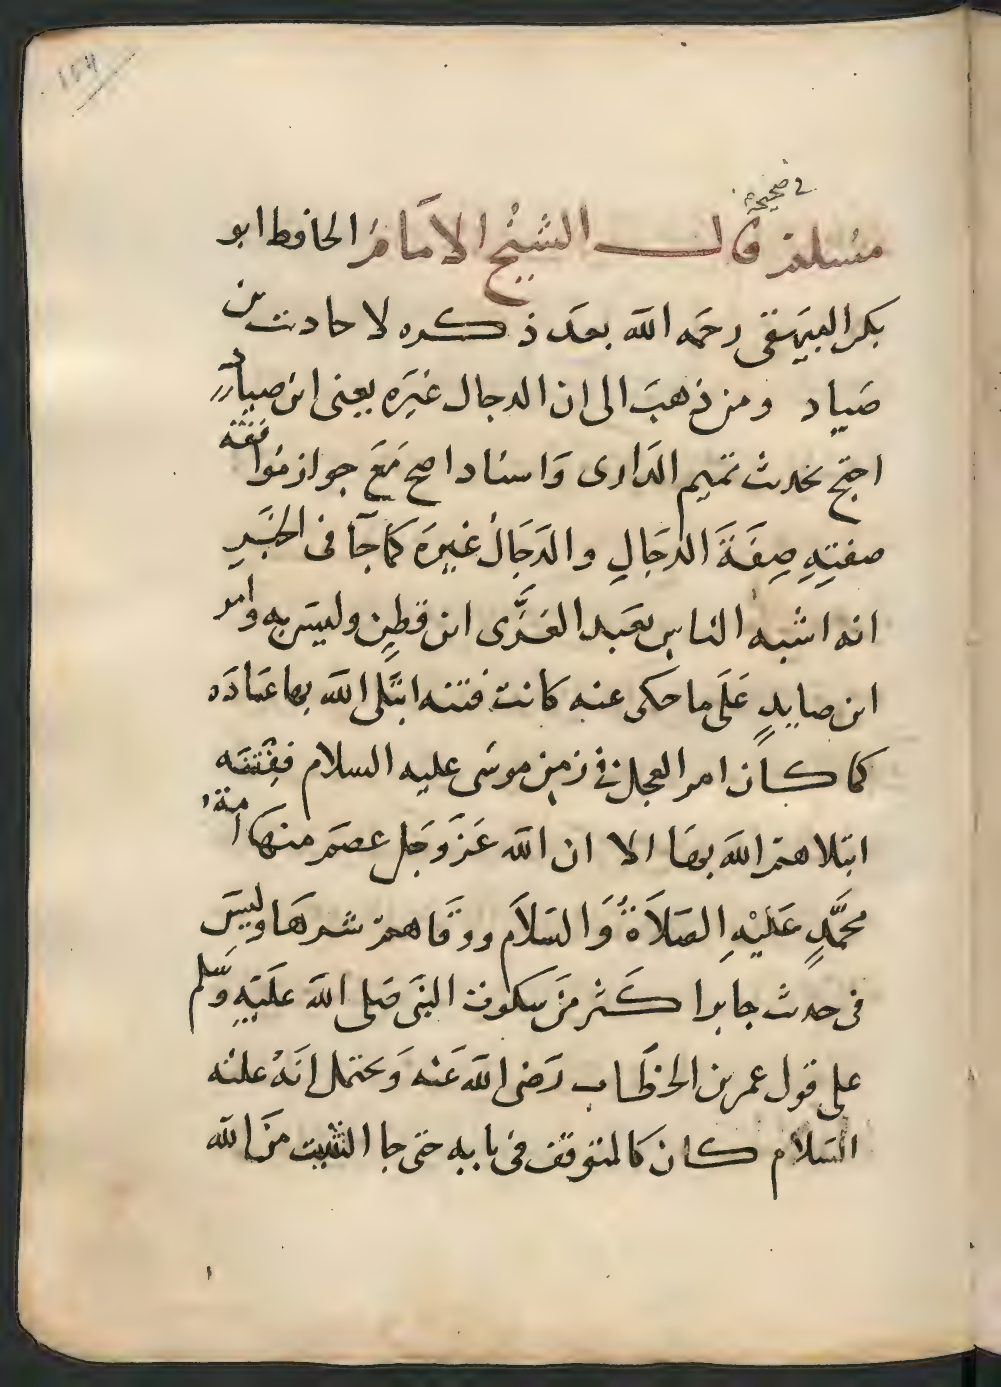 154
في صحيحه
مسلم قال الشيخ الامام الحافظ ابو
بكر البيهقى رحمه الله بعد ذكره لاحادث بن
صياد ومن ذهب الى ان الدجال غيره يعنى ابن صياد
احتج بحدث تميم الدارى واسناد اصح مع جواز موافقة
صفتهِ صِفَةَ الدجالِ والدَجَالُ غيره كما جآ فى الخبرِ
انه اشبه الناس بعبد العزَّى ابن قطنٍ وليس به وامر
ابن صايدٍ عَلَى ما حكى عنه كانت فتنه ابتلى الله بها عباده
كما كان امر العجل فى زمن موسى عليه السلام فتنته
ابتلاهم الله بها الا ان الله عَزَّ وجل عصم منها امة
محمَّدٍ عَليْهِ الصَلاَةُ وَالسَلاَم ووقاهم شرها وليسَ
فى حدث جابر اكثر من سكوت النبى صلى الله عليهِ وسلم
على قول عمر بن الخطاب رضى الله عنه وَيحتمل انهُ عليْه
السلام كان كالمتوقف فى بابه حتى جا التثبت من الله